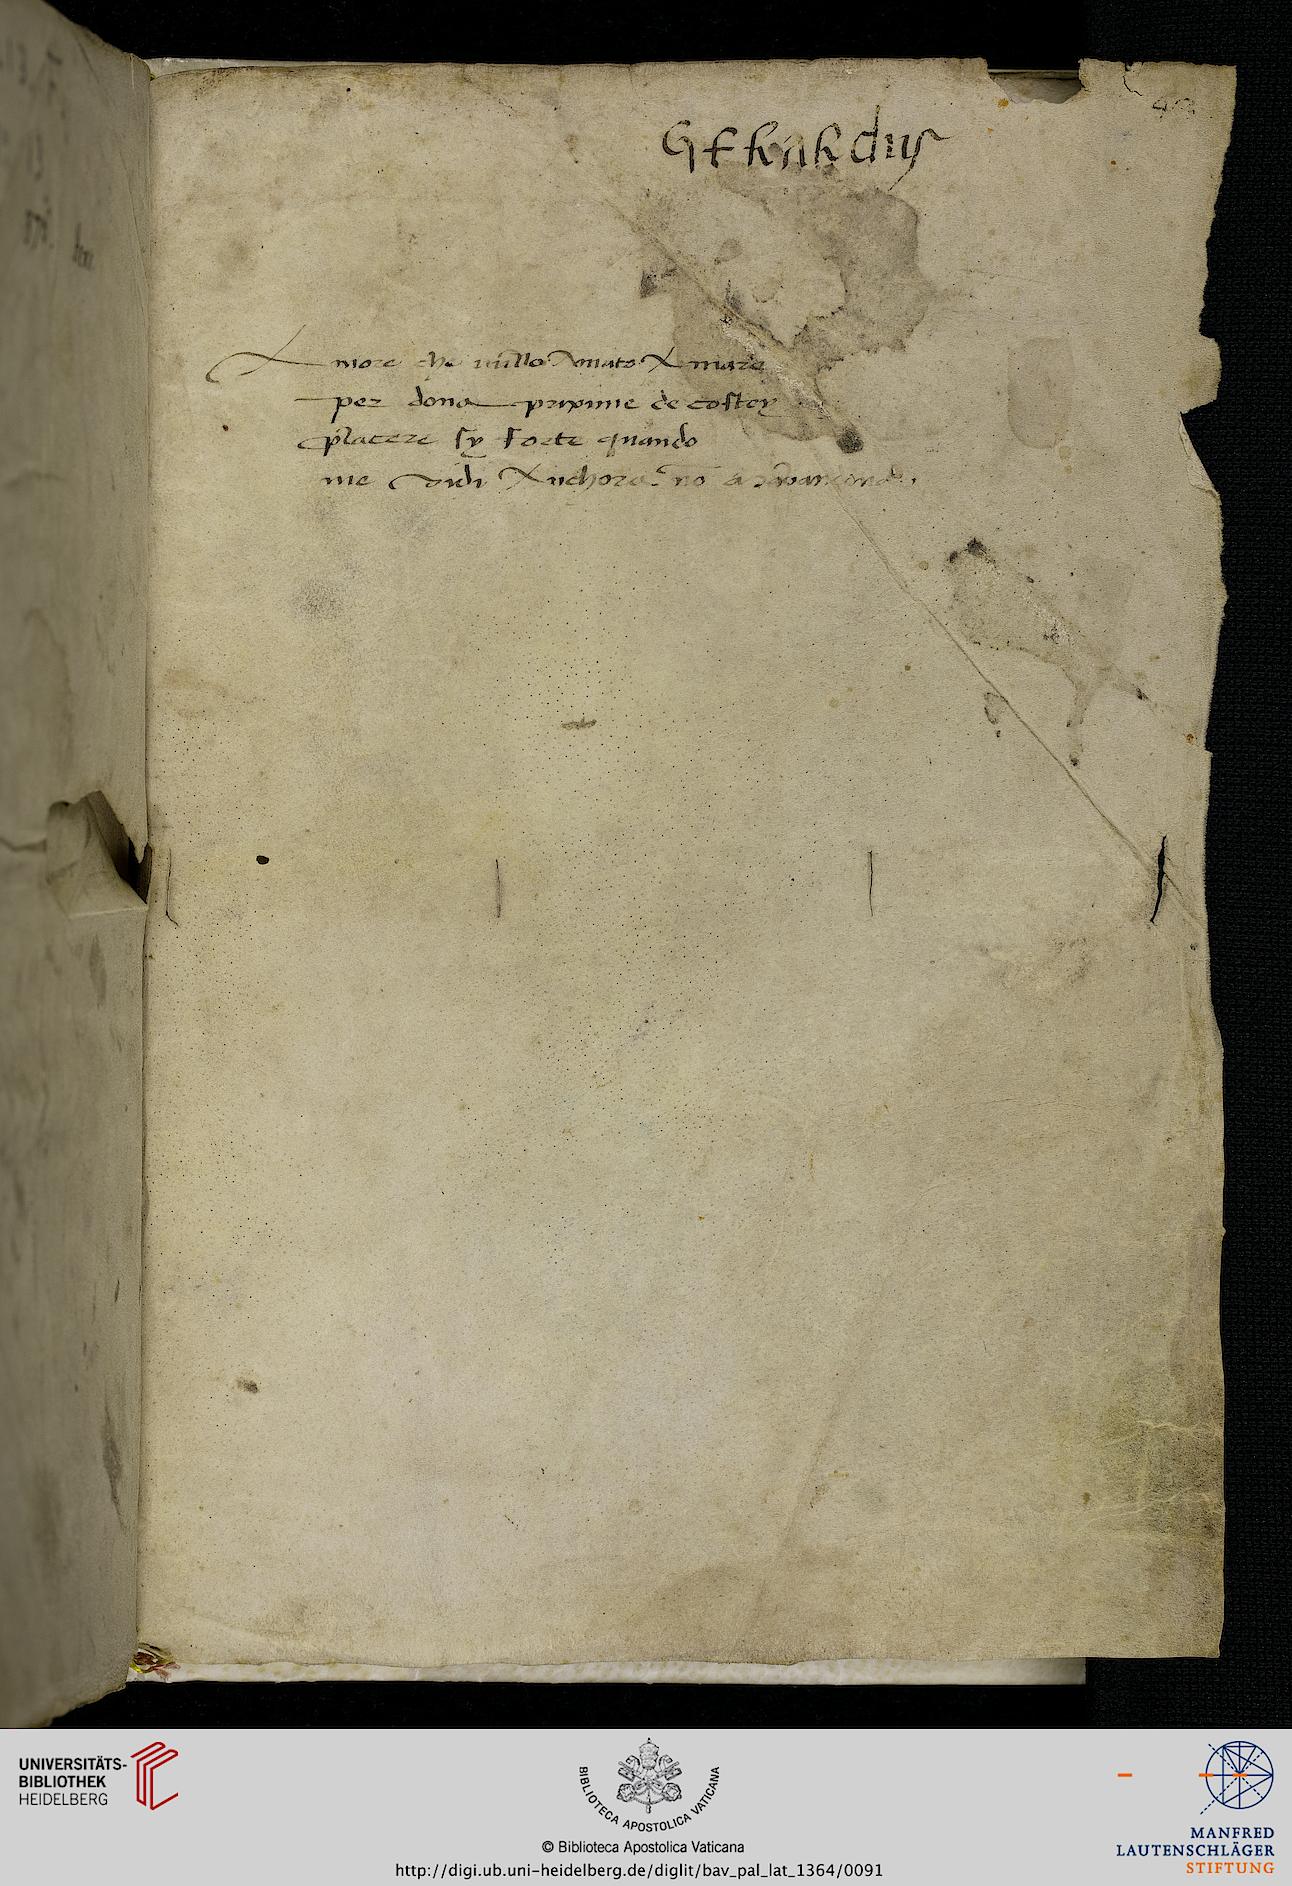 Gerardus
Amore che nullo Amato Amare
per dona prixime de costey
placere sy forte quando
me vidi Anchora no a
UNIVERSITÄTS-
BIBLIOTHEK
HEIDELBERG
BIBLIOTECA APOSTOLICA VATICANA
© Biblioteca Apostolica Vaticana
http://digi.ub.uni-heidelberg.de/diglit/bav_pal_lat_1364/0091
MANFRED
LAUTENSCHLÄGER
STIFTUNG